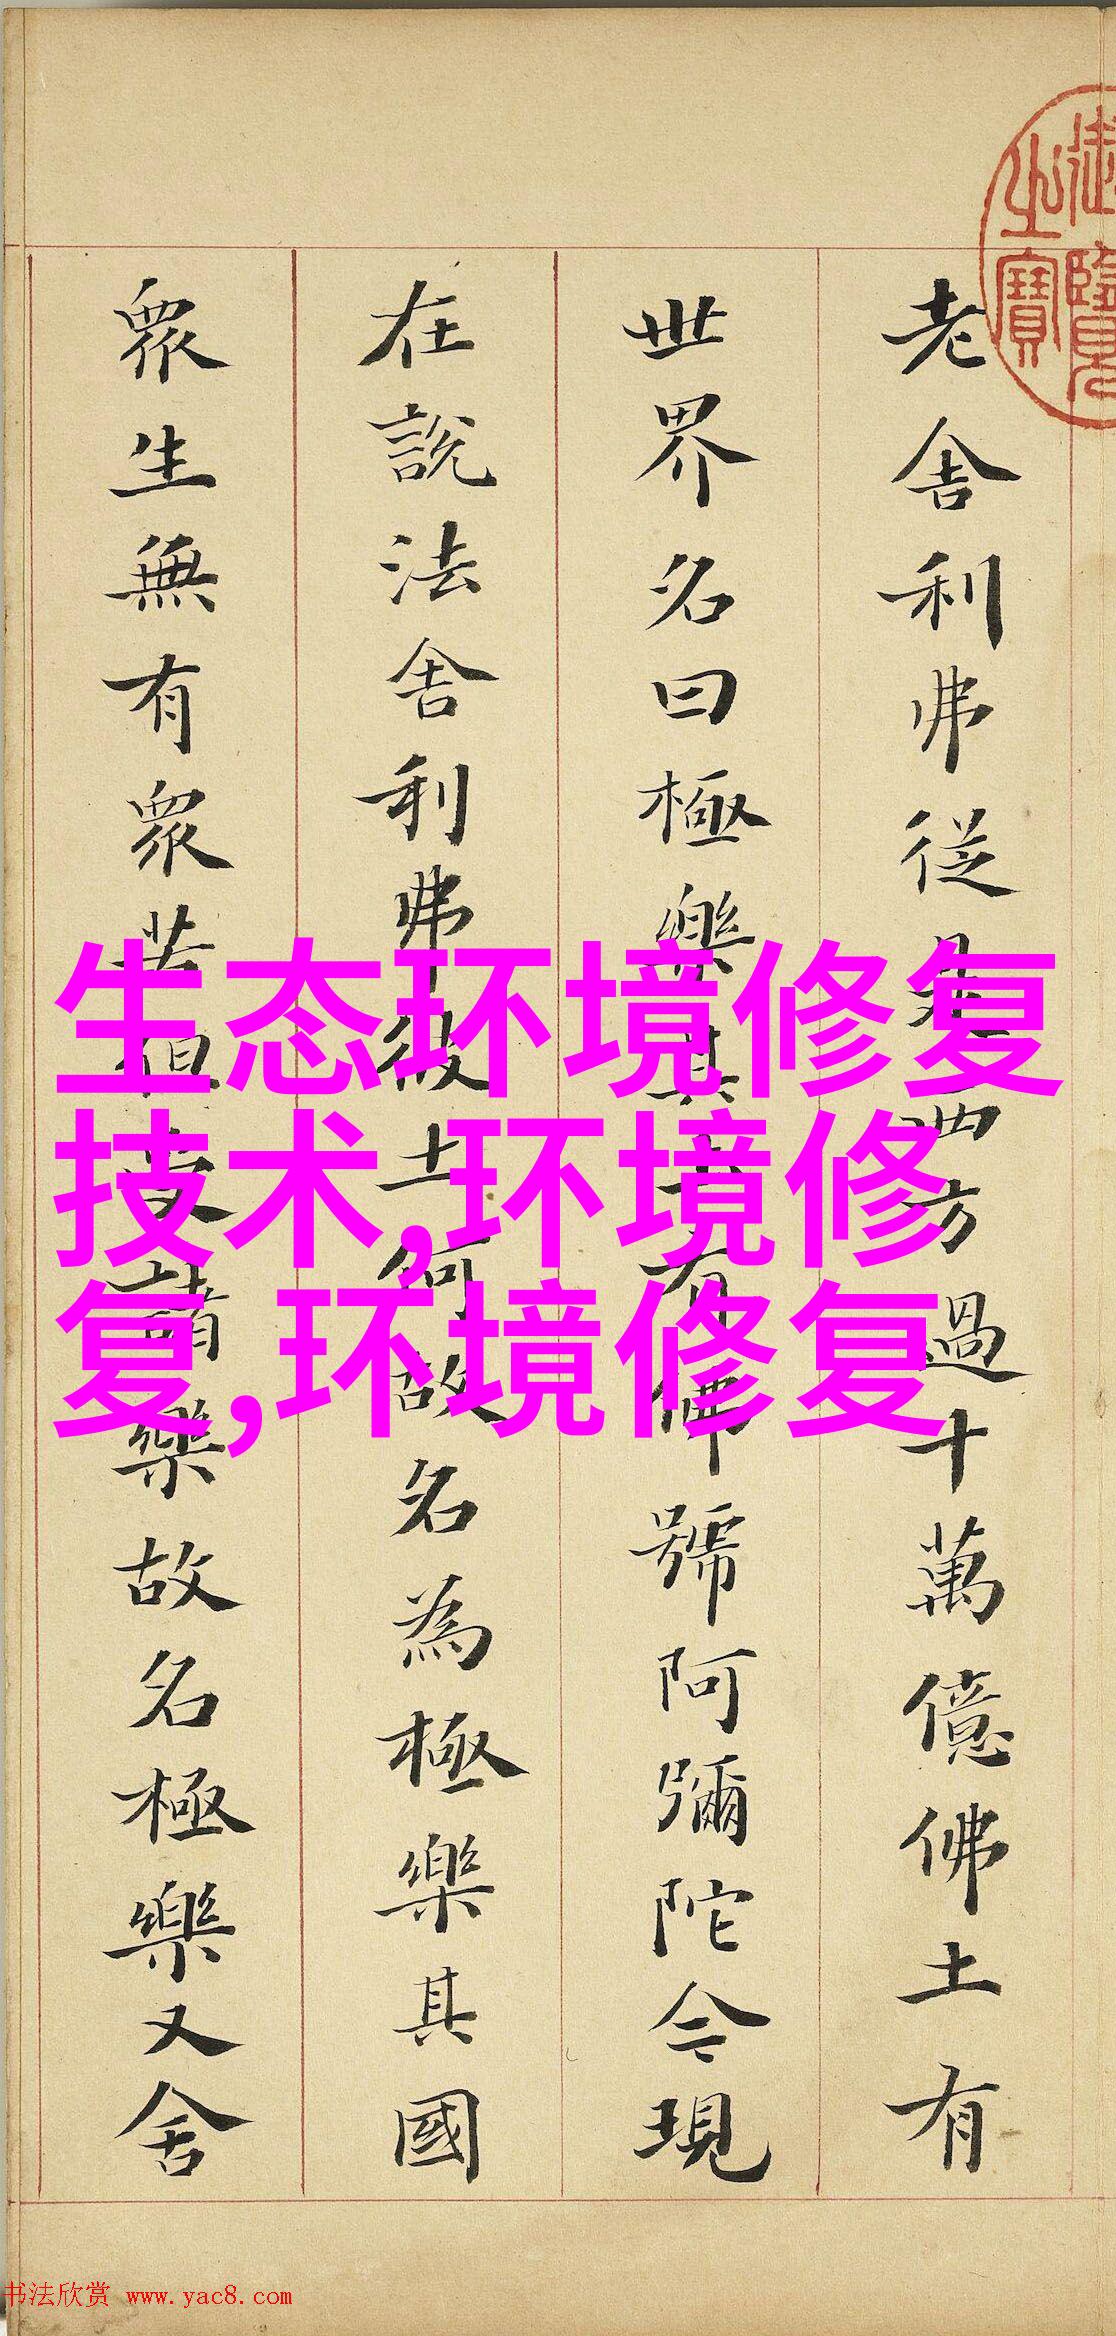 老舍利弗從是西方過十萬億佛土有
世界名曰極樂其土有佛號阿彌陀今現
在說法舍利弗彼土何故名為極樂其國
眾生無有眾苦但受諸樂故名極樂又舍
御覽之寶
生态环境修复
技术,环境修
复,环境修复
书法欣赏 www.yac8.com